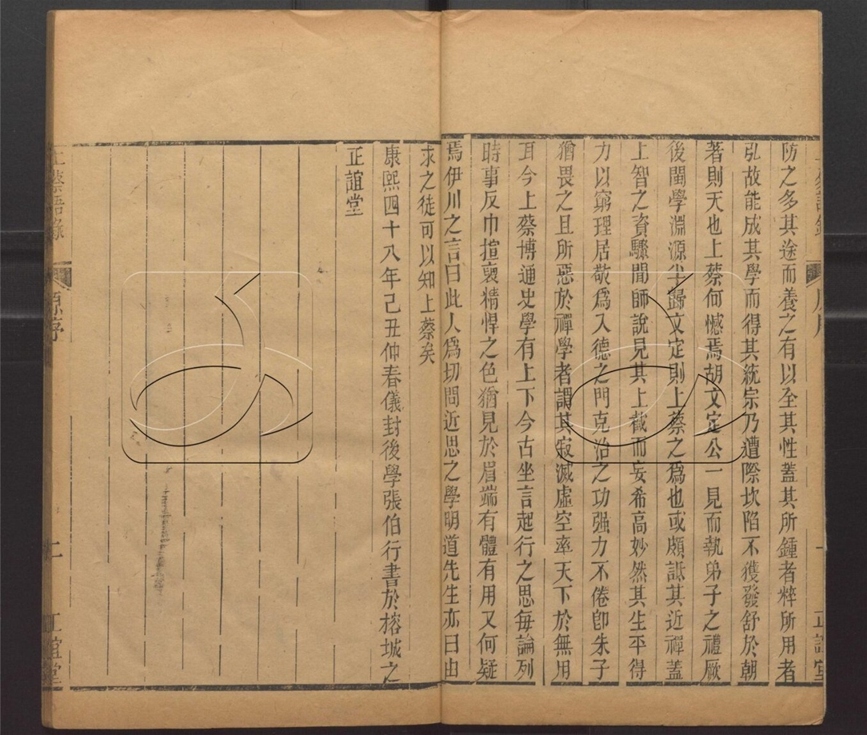 防之多其途而養之有以全其性蓋其所鍾者粹所用者
弘故能成其學而得其統宗乃遭際坎陷不獲發舒於朝
著則天也上蔡何憾焉胡文定公一見而執弟子之禮厥
後閩學淵源半歸文定則上蔡之爲也或頗詆其近禪蓋
上智之資驟聞師說見其上截而妄希高妙然其生平得
力以窮理居敬爲入德之門克治之功强力不倦卽朱子
猶畏之且所惡於禪學者謂其寂滅虛空率天下於無用
耳今上蔡博通史學有上下今古坐言起行之思每論列
時事反巾揎褏精悍之色猶見於眉端有體有用又何疑
焉伊川之言曰此人爲切問近思之學明道先生亦曰由
求之徒可以知上蔡矣
康熙四十八年己丑仲春儀封後學張伯行書於榕城之
正誼堂
上蔡語錄
原序
二
正誼堂